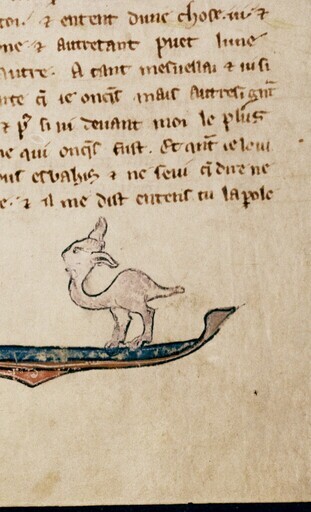 toi. & entent dune chose. ui. &
ne & autretant puet lune
autre. A tant mesuellai & uisi
q̃ ie onq̄s mais autresi gñt
& pͬ si ui deuant moi le plus
e qui onq̄s fust. Et qñt ie leui
esbahis & ne seui q̃ dire ne
e. & il me dist entens tu la pole